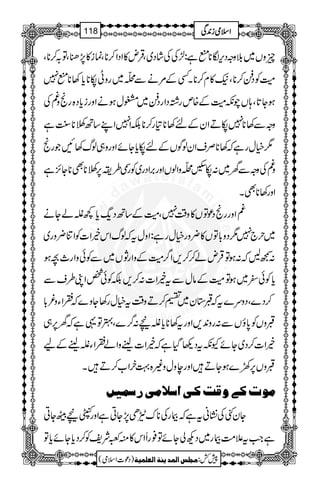 اسلامی زندگی 118
چیزوں میں بلا وجہ دیر لگانا منع ہے: لڑکی کی شادی، قرض کا ادا کرنا، نماز کا پڑھنا، توبہ کرنا،
میت کو دفن کرنا، نیک کام کرنا۔ کسی کے مرنے سے محلہ میں روٹی پکانا یا کھانا منع نہیں
ہو جاتا، ہاں چونکہ میت کے خاص رشتہ دار دفن میں مشغول ہونے اور زیادہ رنج و غم کی
وجہ سے کھانا نہیں پکاتے ان کے لئے کھانا تیار کرنا بلکہ انہیں اپنے ساتھ کھلانا سنت ہے
مگر خیال رہے کہ کھانا صرف ان لوگوں کے لئے پکایا جائے اور وہی لوگ کھائیں جو رنج
وغم کی وجہ سے گھر میں نہ پکا سکیں محلّہ والوں اور برادری کو رسمی طریقہ پر کھلانا بھی ناجائز ہے
اور کھانا بھی۔
غم اور رنج دعوتوں کا وقت نہیں، میت کے ساتھ دیگ یا کچھ غلہ لے جانے
میں حرج نہیں مگر دو باتوں کا ضرور خیال رہے: اول یہ کہ لوگ اس خیرات کو اتنا ضروری
نہ سمجھ لیں کہ نہ ہو تو قرض لے کر کریں اگر میت کے وارثوں میں سے کوئی وارث بچہ ہو
یا کوئی سفر میں ہو تو میت کے مال سے یہ خیرات نہ کریں بلکہ کوئی شخص اپنی طرف سے
کر دے، دوسرے یہ کہ قبرستان میں تقسیم کرتے وقت یہ خیال رہے کہ فقراء و غرباء
قبروں کو پاؤں سے نہ روندیں اور یہ کھانا یا غلہ نیچے نہ گرے، بہتر تو یہی ہے کہ گھر پر ہی
خیرات کر دی جائے کیونکہ یہ دیکھا گیا ہے کہ خیرات لینے والے فقراء غلہ لینے کے لیے
قبروں پر چڑھ جاتے ہیں اور چاول وغیرہ بہت خراب کرتے ہیں۔
موت کے وقت کی اسلامی رسمیں
جان کنی کی نشانی یہ ہے کہ بیمار کی ناک ٹیڑھی پڑ جاتی ہے اور کنپٹی نیچے بیٹھ جاتی
ہے جب یہ علامت بیمار میں دیکھ لی جائے تو فوراً اس کا منہ کعبہ شریف کو کر دیا جائے یا تو
پیش کش: مجلس المدینۃ العلمیۃ (دعوت اسلامی)